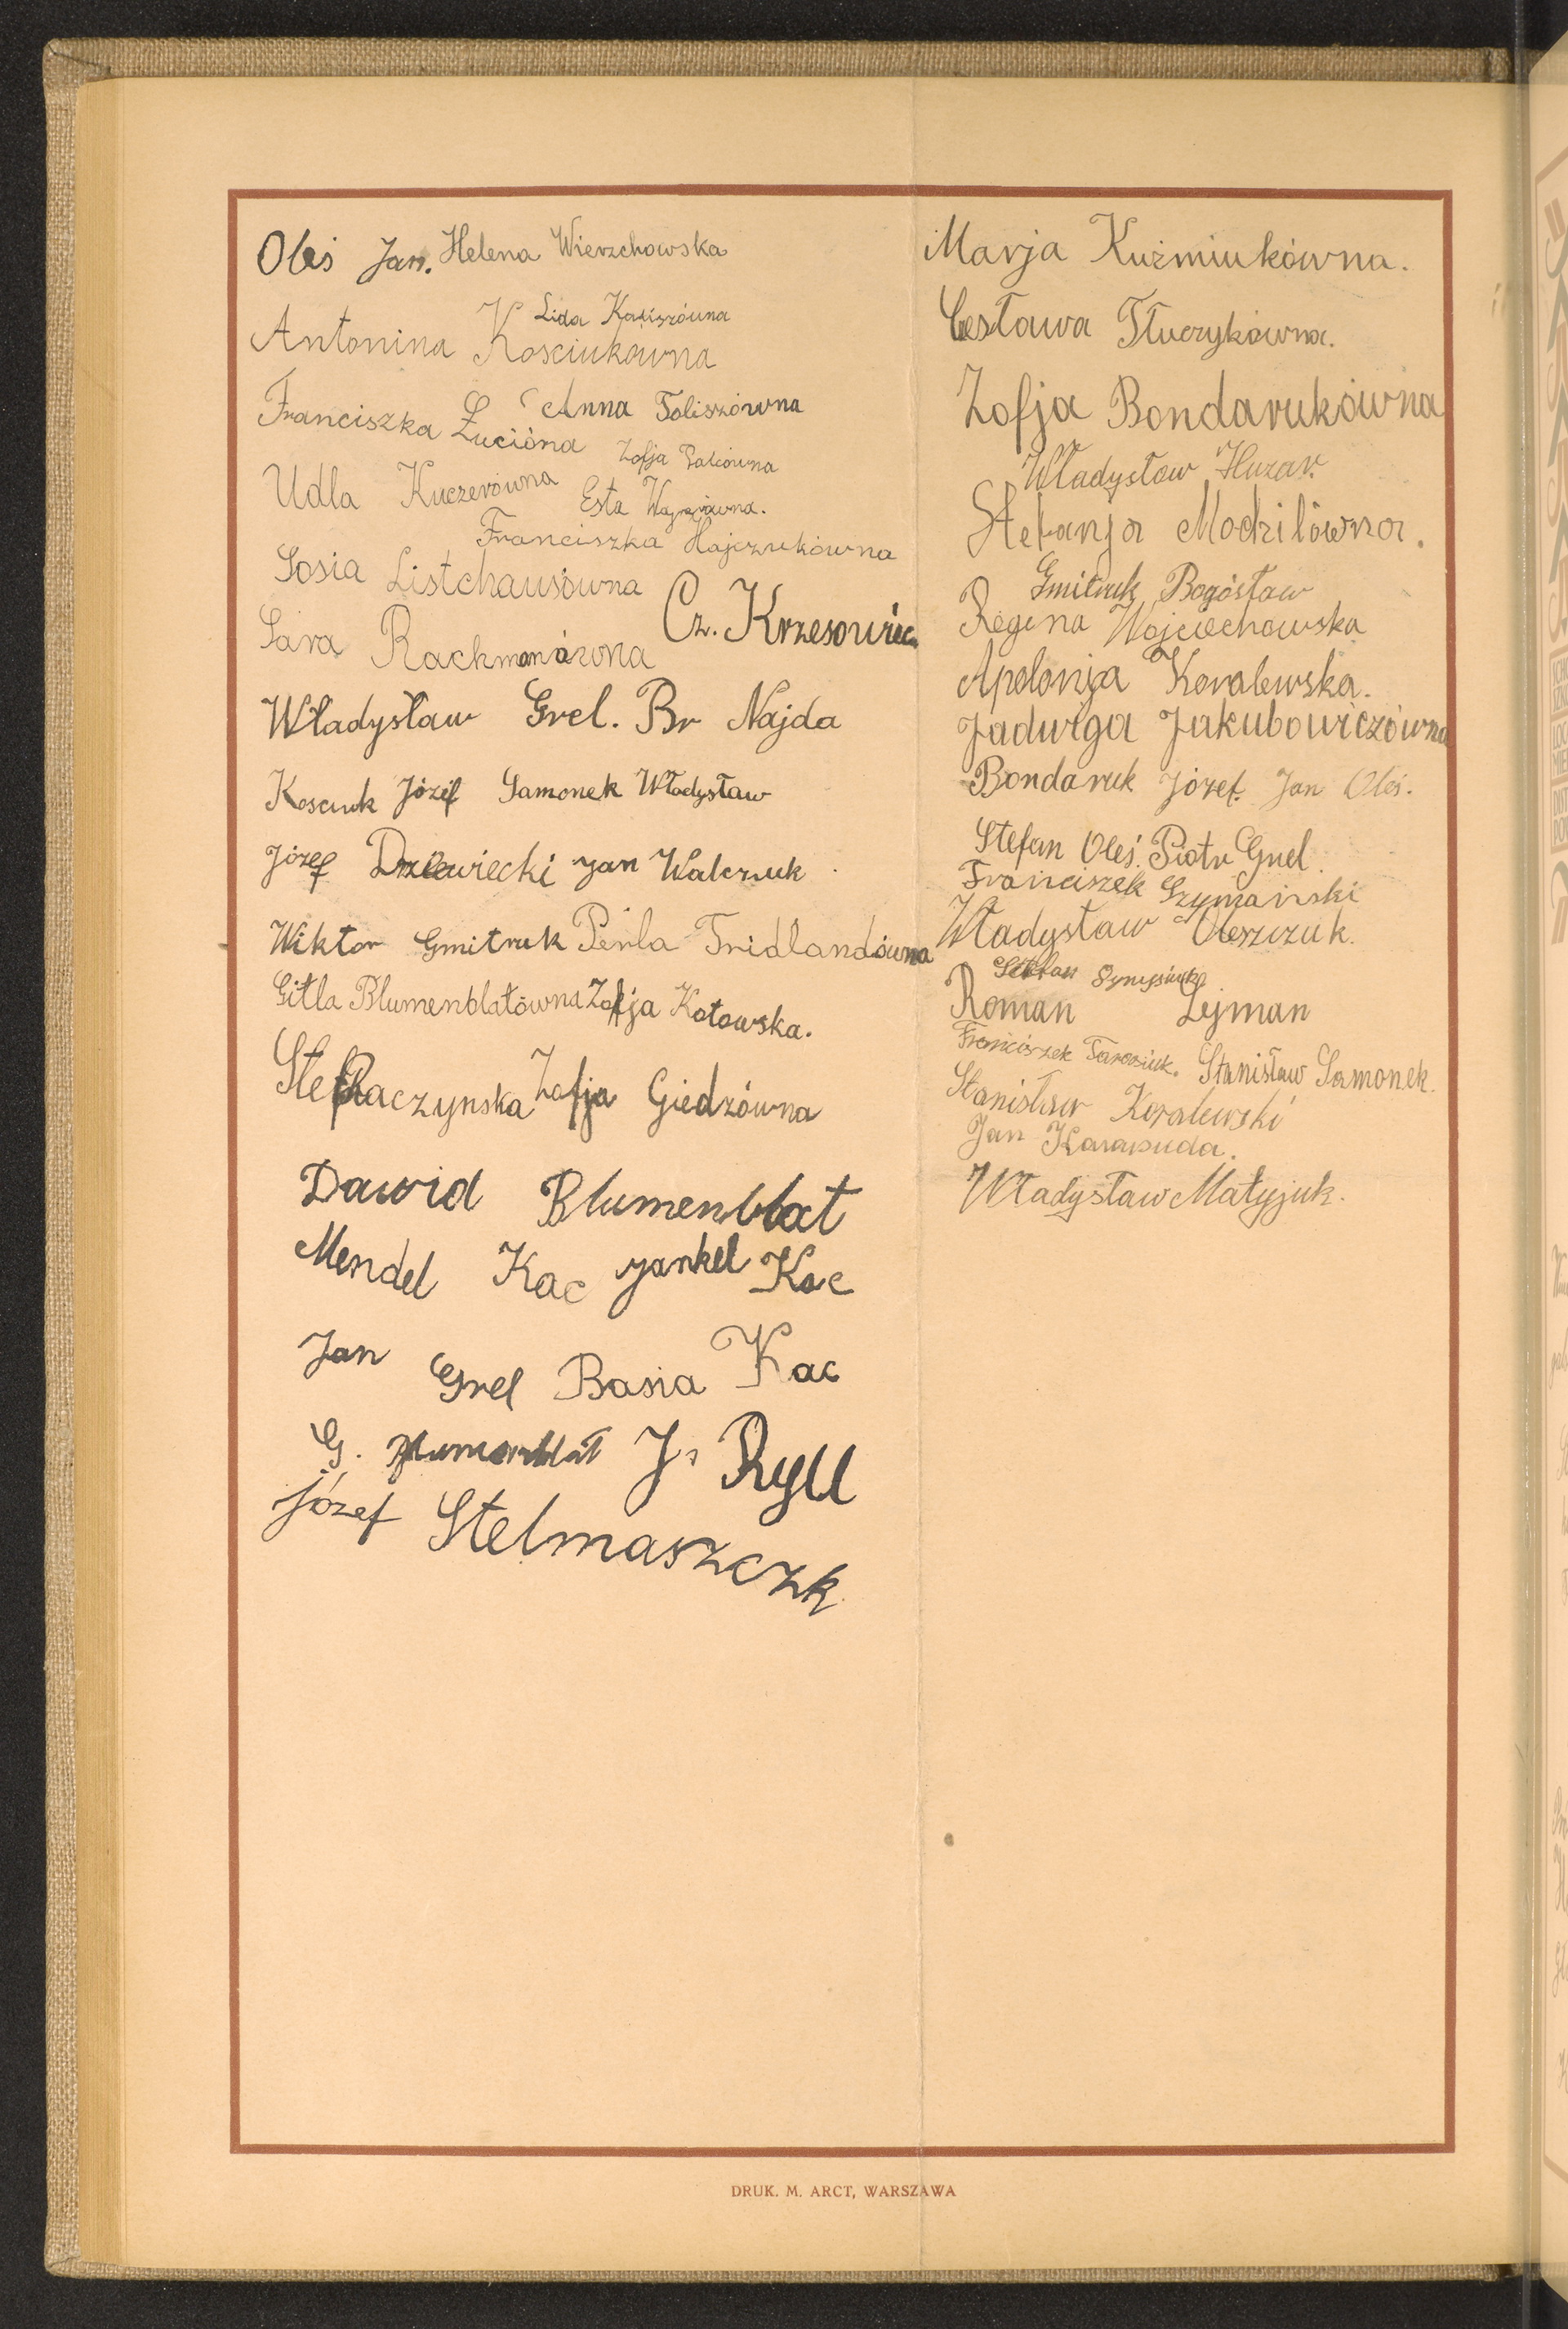 Oleś Jan. Helena Wierzchowska
Lida Kaliszówna
Antonina Kosciukówna
Franciszka Łucióna Anna Toliszówna
Zofja
Udla Kuczerówna Esta
Franciszka Hajczukówna
Sosia Listchausówna
Cz. Krzesowiec
Sara Rachmanówna
Władysław Grel. Br Najda
Kosciuk Józef Samonek Władysław
Józef Drzewiecki Jan Walczuk
Wiktor Gmitruk Perla Fridlandówna
Gitla Blumenblatówna Zofja Kotowska.
Stef Raczynska Zofja Giedzówna
Dawid Blumenblat
Mendel Kac Jankel Kac
Jan Grel Basia Kac
G. Blumenblat J. Ryll
Józef Stelmaszczk
Marja Kuźmiukówna.
Cesława Tłuczykówna.
Zofja Bondarukówna
Władysław Huzar.
Stefanja Modzilówna.
Gmitruk Bogósław
Regina Wojciechowska
Apolonja Kovalewska.
Jadwiga Jakubowiczówna
Bondaruk Józef. Jan Oleś.
Stefan Oleś. Piotr Grel.
Franciszek Szymański
Władysław Oleszczuk.
Stefan
Roman Lejman
Franciszek Tarasiuk. Stanisław Samonek.
Stanisław Kovalewski
Jan Karapuda.
Władysław Matyjuk.
DRUK. M. ARCT, WARSZAWA